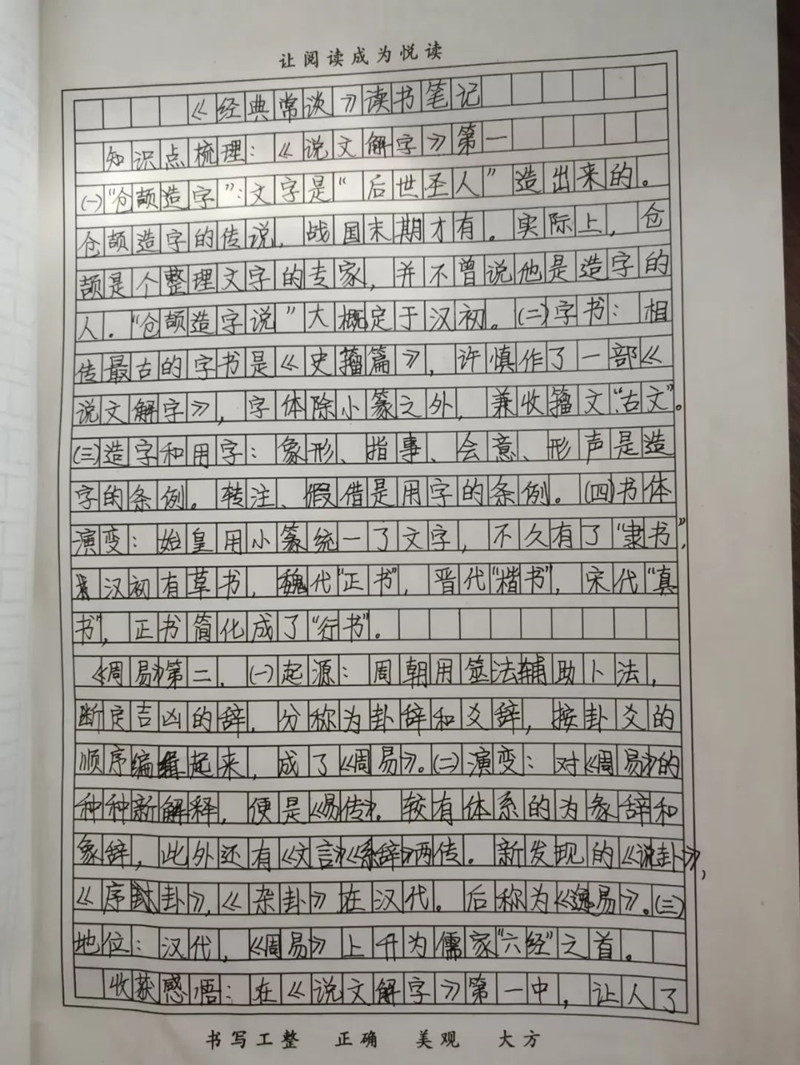 让阅读成为悦读
《经典常谈》读书笔记
知识点梳理：《说文解字》第一
(一)“仓颉造字”：文字是“后世圣人”造出来的。
仓颉造字的传说，战国末期才有。实际上，仓
颉是个整理文字的专家，并不曾说他是造字的
人．“仓颉造字说”大概定于汉初。(二)字书：相
传最古的字书是《史籀篇》，许慎作了一部《
说文解字》，字体除小篆之外，兼收籀文“古文”。
(三)造字和用字：象形、指事、会意、形声是造
字的条例。转注、假借是用字的条例。(四)书体
演变：始皇用小篆统一了文字，不久有了“隶书”，
汉初有草书，魏代“正书”，晋代“楷书”，宋代“真
书”，正书简化成了“行书”。
《周易》第二．(一)起源：周朝用筮法辅助卜法，
断定吉凶的辞．分称为卦辞和爻辞，按卦爻的
顺序编起来，成了《周易》。(二)演变：对《周易》的
种种新解释，便是《易传》．较有体系的为彖辞和
象辞，此外还有《文言》《系辞》两传．新发现的《说卦》，
《序卦》，《杂卦》在汉代。后称为《逸易》。(三)
地位：汉代，《周易》上升为儒家“六经”之首。
收获感悟：在《说文解字》第一中，让人了
书写工整 正确 美观 大方